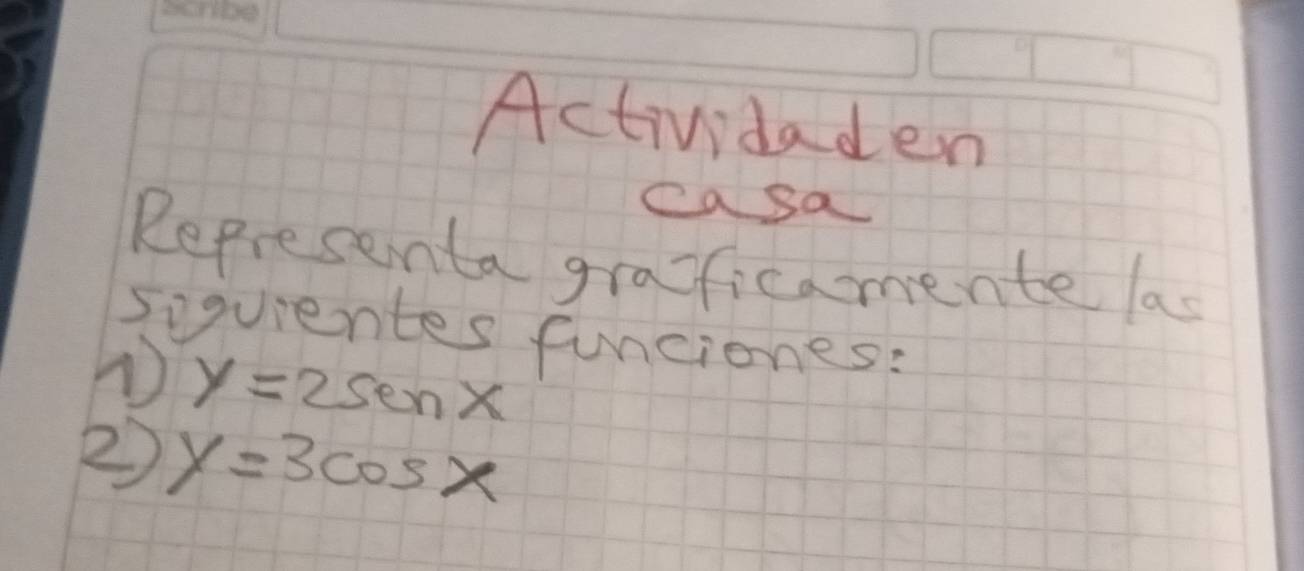 Scribe
Actividad en
casa
Representa graficamente las
siguientes funciones:
1) y=2senx
2) y=3cosx